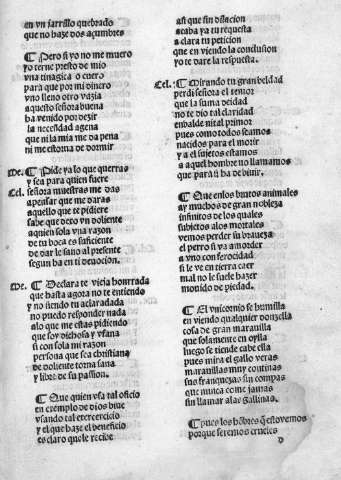 en vn jarrillo quebrado
que no haze dos açumbres
¶ Pero si yo no me muero
yo terne presto de mio
vna tinagica o cuero
para que por mi dinero
vno lleno otro vazio
aquesto señora buena
ha venido por dezir
la necesidad agena
que ni la mia me da pena
ni me estorua de dormir
Me. ¶ Pide ya lo que querras
y sea para quien fuere
Cel. señora muestras me das
a pensar que me daras
aquello que te pidiere
sabe que dexo vn doliente
a quien sola vna razon
de tu boca es suficiente
de dar le sano al presente
segun ha en ti deuocion.
Me. ¶ Declara te vieja honrrada
que hasta agora no te entiendo
y no siendo tu aclaradada
no puedo responder nada
alo que me estas pidiendo
que soy dichosa y vfana
si con sola mi razon
persona que sea christiana
de doliente torna sana
y libre de su passion.
¶ Que quien vsa tal oficio
en exemplo de dios biue
vsando tal exercercicio
y el que haze el beneficio
es claro que le recibe
assi que sin dilacion
acaba ya tu requesta
aclara tu peticion
que en viendo la conclusion
yo te dare la respuesta.
Cel. ¶ Mirando tu gran beldad
perdi señora el temor
que la suma deidad
no te dio tal claridad
en balde ni tal primor
pues como todos seamos
nacidos para el morir
y a el sujetos estamos
a aquel hombre no llamamos
que para si ha de biuir.
¶ Que en los brutos animales
ay muchos de gran nobleza
infinitos de los quales
subietos alos mortales
vemos perder su braueza
el perro si va a morder
a vno con ferocidad
si le ve en tierra caer
mal no le suele hazer
mouido de piedad.
¶ El vnicornio se humilla
en viendo qualquier donzella
cosa de gran marauilla
que solamente en oylla
luego se tiende cabe ella
pues mira el gallo veras
marauillas muy continas
sus franquezas sin compas
que nunca come jamas
sin llamar alas gallinas.
¶ pues los hõbres q̃ estovemos
porque seremos crueles
D